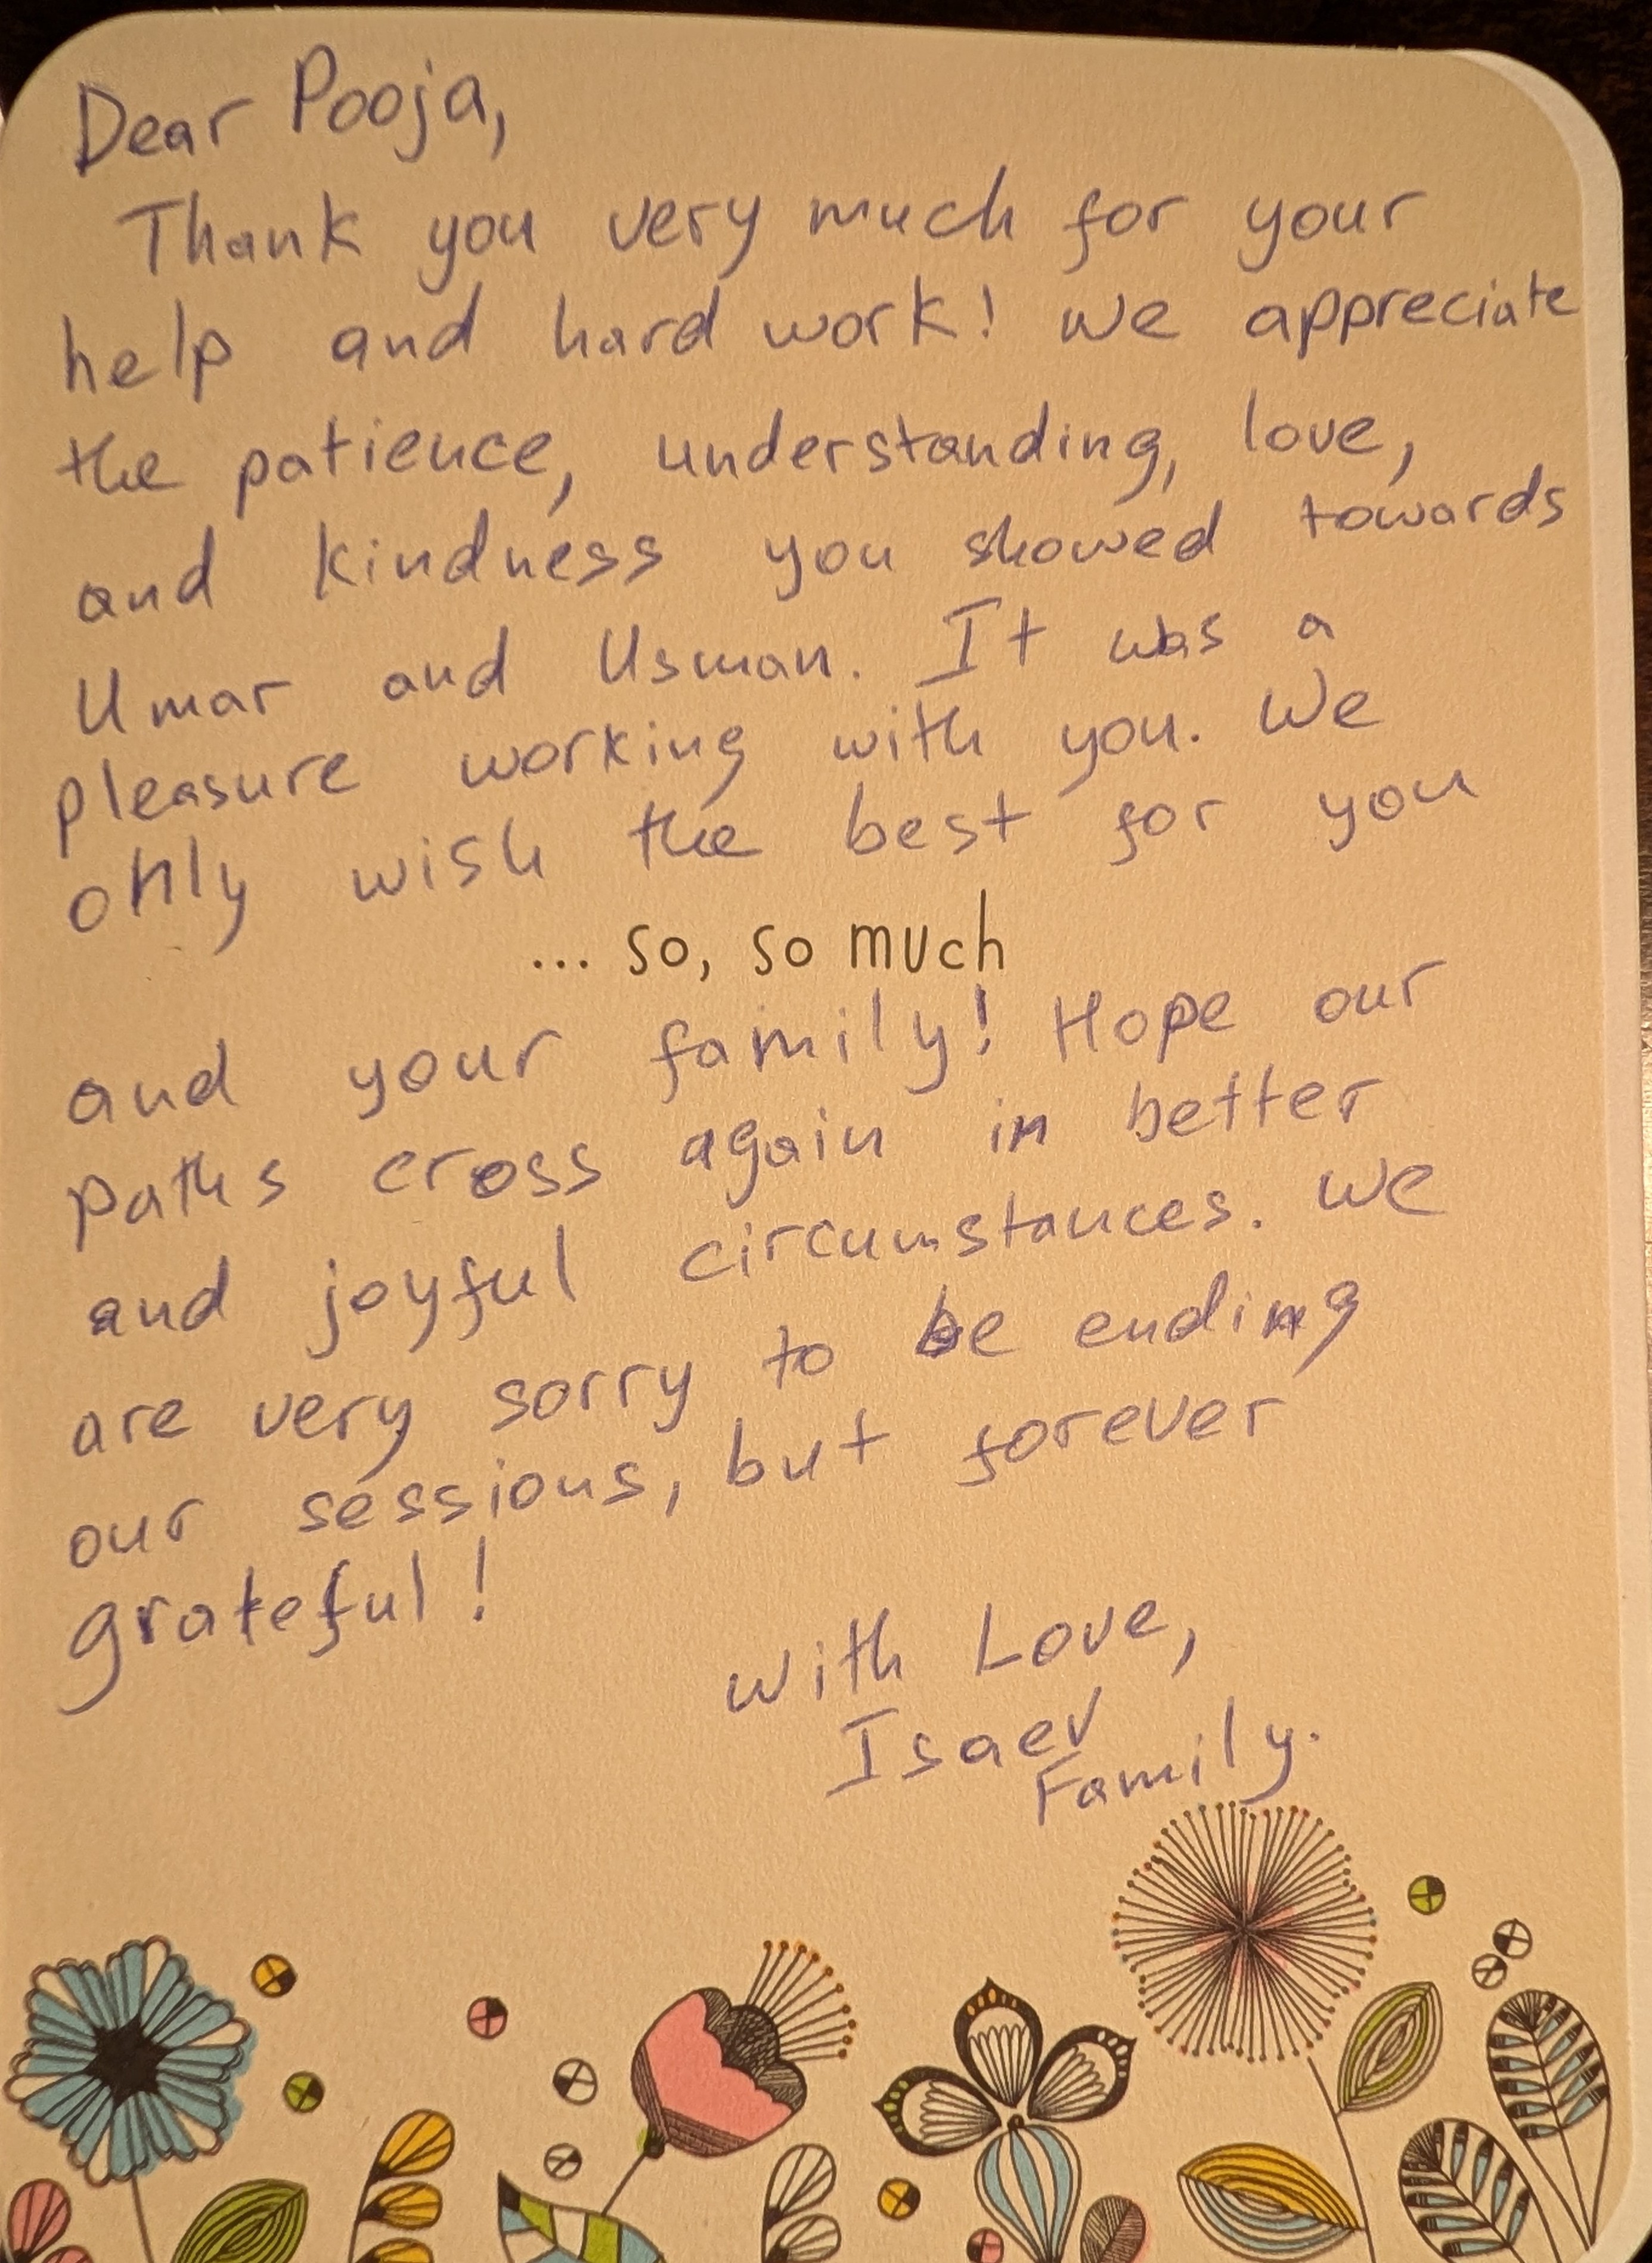 Dear Pooja,
Thank you very much for your
help and hard work! We appreciate
the patience, understanding, love,
and kindness you showed towards
Umar and Usman. It was a
pleasure working with you. We
only wish the best for you
... so, so much
and your family! Hope our
paths cross again in better
and joyful circumstances. We
are very sorry to be ending
our sessions, but forever
grateful!
With Love,
Isaev
Family.